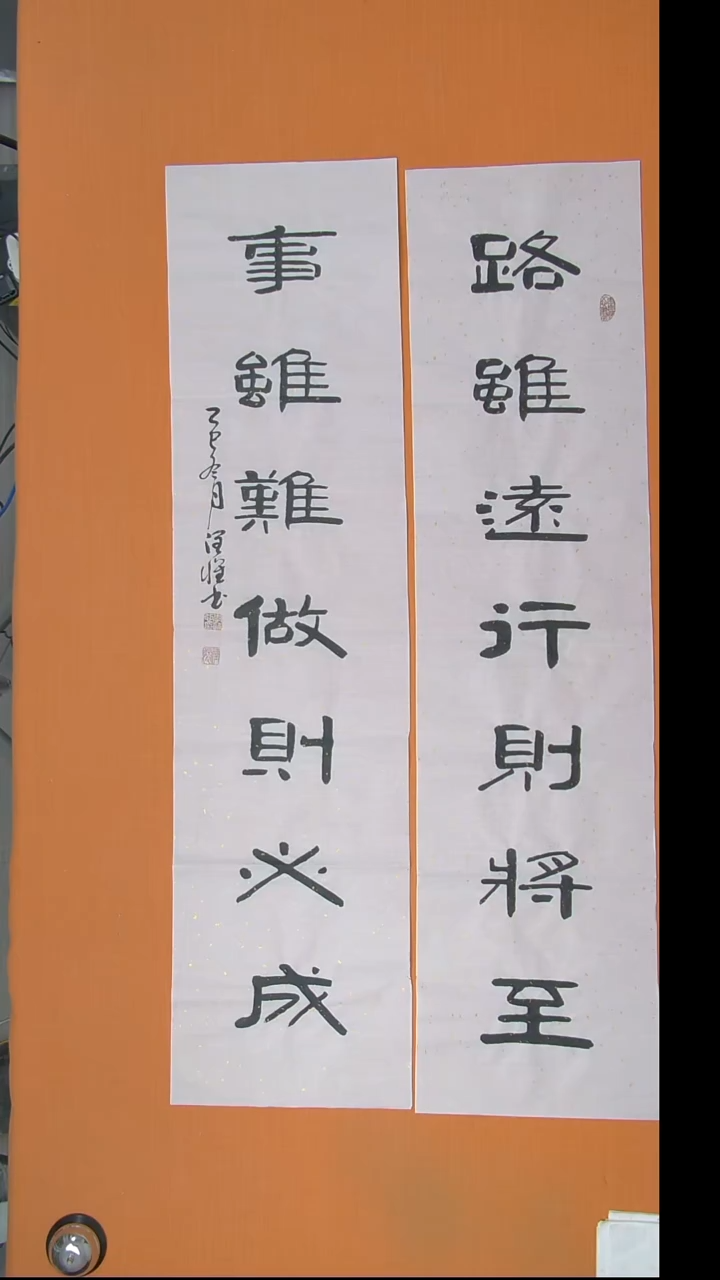 路雖遠行則將至
事雖難做則必成
乙巳冬月